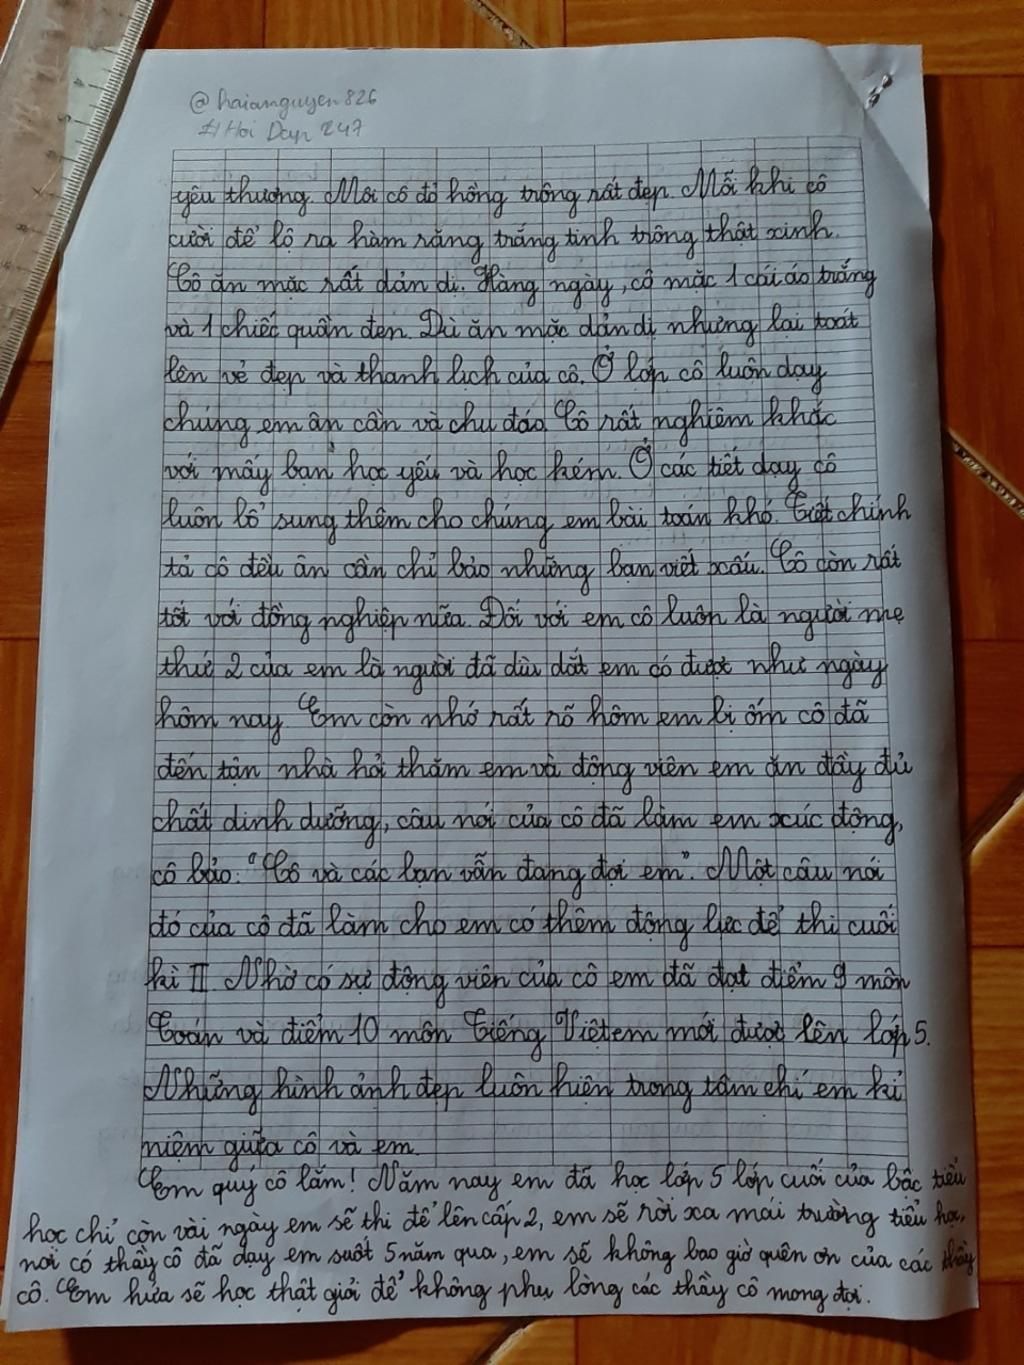 @haianguyen826
#Hoi Dap 247
yêu thương. Môi cô đỏ hồng trông rất đẹp. Mỗi khi cô
cười để lộ ra hàm răng trắng tinh trông thật xinh.
Cô ăn mặc rất dản dị. Hàng ngày, cô mặc 1 cái áo trắng
và 1 chiếc quần đen. Dù ăn mặc dản dị nhưng lại toát
lên vẻ đẹp và thanh lịch của cô. Ở lớp cô luôn dạy
chúng em ân cần và chu đáo. Cô rất nghiêm khắc
với mấy bạn học yếu và học kém. Ở các tiết dạy cô
luôn bổ sung thêm cho chúng em bài toán khó. Tiết chính
tả cô đều ân cần chỉ bảo những bạn viết xấu. Cô còn rất
tốt với đồng nghiệp nữa. Đối với em cô luôn là người mẹ
thứ 2 của em là người đã dìu dắt em có được như ngày
hôm nay. Em còn nhớ rất rõ hôm em bị ốm cô đã
đến tận nhà hỏi thăm em và động viên em ăn đầy đủ
chất dinh dưỡng, câu nói của cô đã làm em xúc động,
cô bảo: "Cô và các bạn vẫn đang đợi em". Một câu nói
đó của cô đã làm cho em có thêm động lực để thi cuối
kì II. Nhờ có sự động viên của cô em đã đạt điểm 9 môn
Toán và điểm 10 môn Tiếng Việt em mới được lên lớp 5.
Những hình ảnh đẹp luôn hiện trong tâm chí em kỉ
niệm giữa cô và em.
Em quý cô lắm! Năm nay em đã học lớp 5 lớp cuối của bậc tiểu
học chỉ còn vài ngày em sẽ thi để lên cấp 2, em sẽ rời xa mái trường tiểu học,
nơi có thầy cô đã dạy em suốt 5 năm qua, em sẽ không bao giờ quên ơn của các thầy
cô. Em hứa sẽ học thật giỏi để không phụ lòng các thầy cô mong đợi.